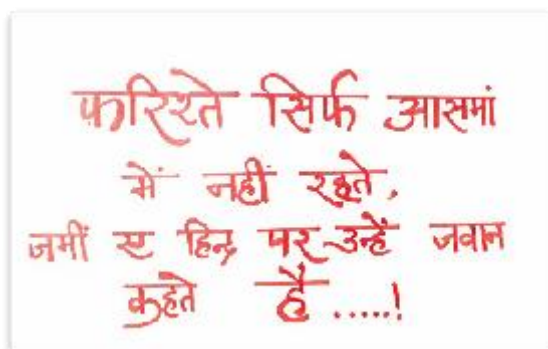 फरिश्ते सिर्फ आसमां
में नहीं रहते,
जमीं ए हिन्द पर उन्हें जवान
कहते हैं.....!